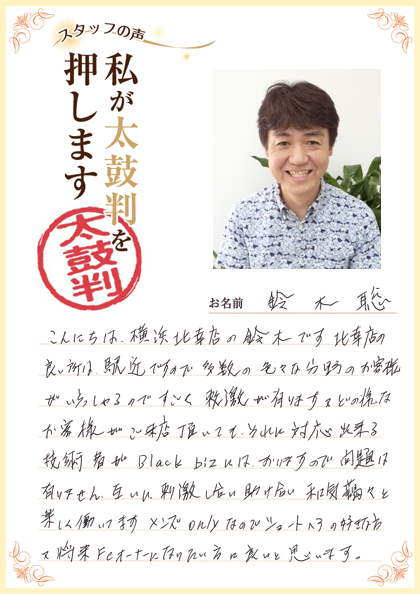 スタッフの声
私が太鼓判を
押します
太鼓判
お名前 鈴木 聡
こんにちは、横浜北幸店の鈴木です 北幸店の
良い所は、駅近ですので 多数の色々な分野のお客様
がいらっしゃるのですごく 刺激が有ります どの様な
お客様がご来店頂いても、それに対応出来る
技術者が Black bizには、おりますので 問題は
有りません、互いに 刺激し合い 助け合い 和気藹々と
楽しく働いてます メンズonlyなのでショート の好きな方
将来FCオーナーになりたい方に良いと思います。